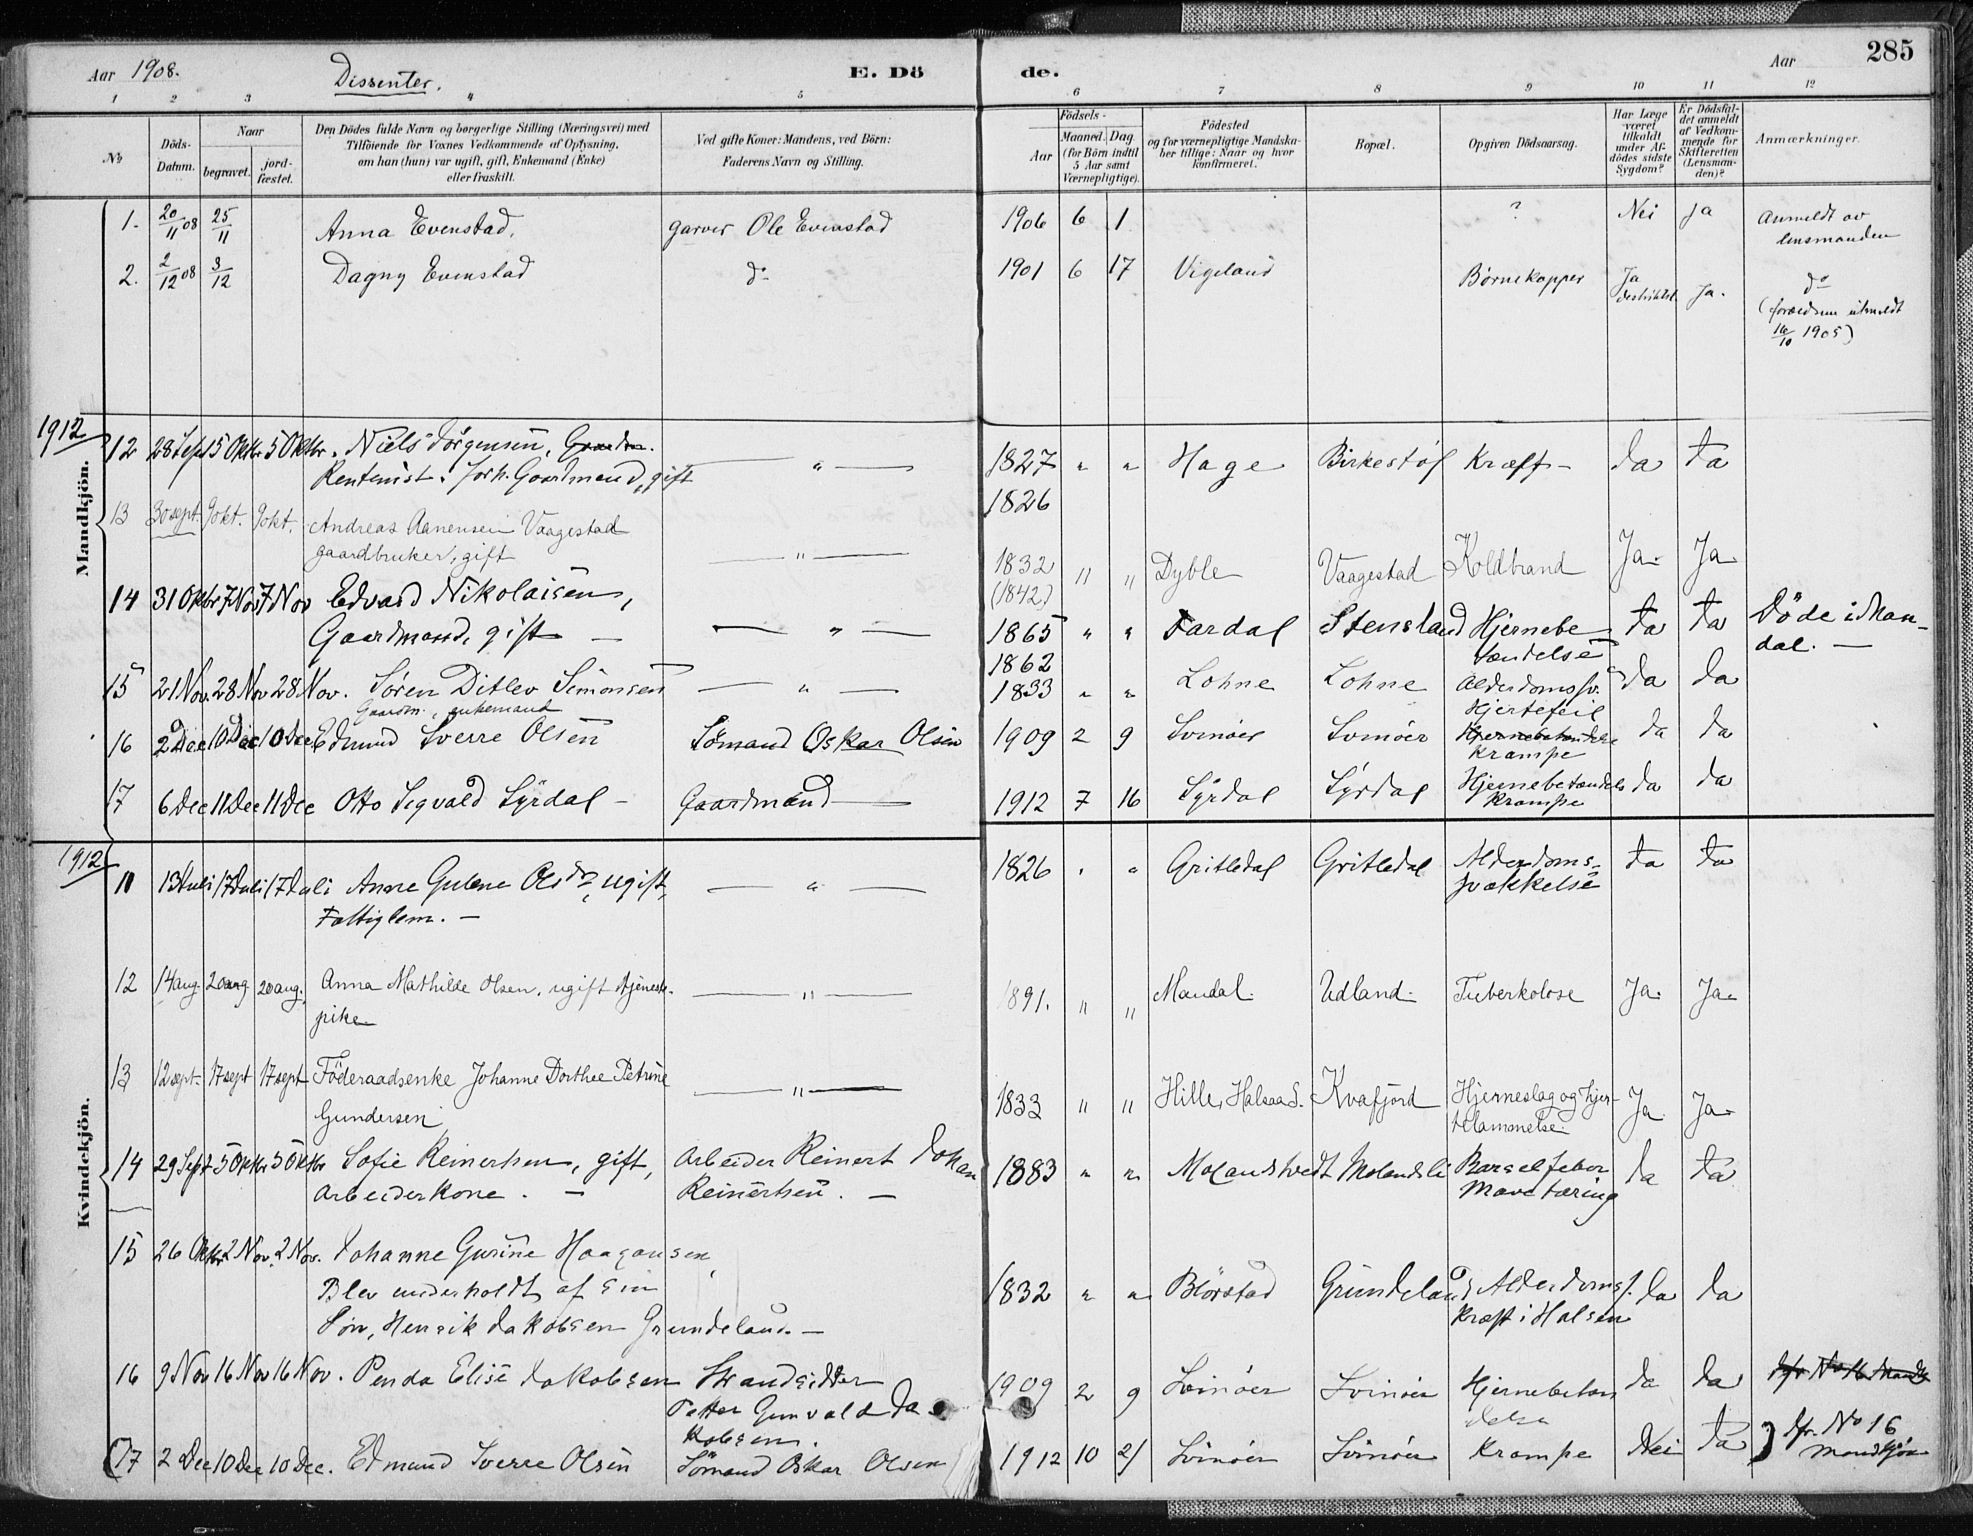 Aar 1908. Dissenter. E. Dö de. Aar 285
1 2 3 4 5 6 7 8 9 10 11 12
No Döds-Datum. Naar begravet. jord-fæstet. Den Dödes fulde Navn og borgerlige Stilling (Næringsvei) med Tilföiende for Voxnes Vedkommende af Oplysning, om han (hun) var ugift, gift, Enkemand (Enke) eller fraskilt. Ved gifte Koner: Mandens, ved Börn: Faderens Navn og Stilling. Födsels- Aar Maaned. Dag (for Börn indtil 5 Aar samt Værnepligtige). Födested og for værnepligtige Mandskaber tillige: Naar og hvor konfirmeret. Bopæl. Opgiven Dödsaarsag. Har Læge været tilkaldt under Afdödes sidste Sygdom? Er Dödsfaldet anmeldt af Vedkommende for Skifteretten (Lensmanden)? Anmærkninger.
Mandkjön.
1. 20/11 08 25/11 Anna Evenstad, garver Ole Evenstad 1906 6 1 ? Nei Ja Anmeldt av
lensmanden
2. 2/12 08 3/12 Dagny Evenstad do 1901 6 17 Vigeland Børnekopper Ja Ja. do
(forældrene utmeldt
16/10 1905)
1912
12 28 Sept 5 Oktbr 5 Oktbr. Niels Jörgensen, Gaardm. — " — 1827 " " Hage Birkestöl Kræft — Ja Ja
Rentenist. forh. Gaardmand, gift
1826
13 30 sept. 9 okt. 9 okt. Andreas Aanensen Vaagestad
gaardbruker, gift — " — 1832 " " Dyble Vaagestad Koldbrand Ja Ja
(1842)
14 31 Oktbr 7 Nov 7 Nov Edvard Nikolaisen,
Gaardmand, gift — — " — 1865 " " Jardal Stensland Hjernebe Ja Ja Döde i Man-
tændelse dal. —
1862
15 21 Nov. 28 Nov 28 Nov. Sören Ditlev Simonsen — " — 1833 " " Lohne Lohne Alderdomssv. Ja Ja
Gaardm., enkemand Hjertefeil
16 2 Dec 10 Dec 10 Dec Edmund Sverre Olsen Sömand Oskar Olsen 1909 2 9 Svinöer Svinöer Hjernebetændelse Ja Ja
Krampe
17 6 Dec 11 Dec 11 Dec Otto Sigvald Syrdal — Gaardmand — 1912 7 16 Syrdal Syrdal Hjernebetændels Ja Ja
Krampe
Kvindekjön.
1912
11 13 Juli 17 Juli 17 Juli Anne Gulene Olsdr, ugift, — " — 1826 " " Gritledal Gritledal Alderdoms- Ja Ja
Fattiglem. — svækkelse
12 14 aug 20 aug 20 aug. Anna Mathilde Olsen, ugift tjeneste- — " — 1891. " " Mandal. Udland. Tuberkolose Ja. Ja
pike
13 12 sept. 17 sept 17 sept Föderaadsenke Johanne Dorthee Petrine — " —
Gundersen 1833 " " Hille, Halsaa s. Kvafjord Hjerneslag og hjer- Ja Ja
telammelse.
14 29 Sept 5 Oktbr 5 Oktbr Sofie Reinertsen, gift, Arbeider Reinert Johan 1883 " " Molandsvedt Molandsli Barselfeber Ja Ja
Arbeiderkone. — Reinertsen. — Mavetæring
15 26 Oktbr 2 Nov. 2 Nov. Johanne Gurine Haagansen,
Blev underholdt af sin 1832 " " Blörstad Grundeland Alderdomss. Ja Ja
Sön, Henrik Jakobsen Grundeland. — Kræft i Halsen
16 9 Nov 16 Nov 16 Nov. Penda Elise Jakobsen Strandsidder 1909 2 9 Svinöer Svinöer Hjernebetæn Ja Ja
Petter Gunvald Ja- delse
kobsen.
(17 2 Dec 10 Dec 10 Dec. Edmund Sverre Olsen Sömand Oskar Olsen 1912 10 21 Svinöer Svinöer Krampe Nei Ja ) Jfr. No 16
Mandkjön